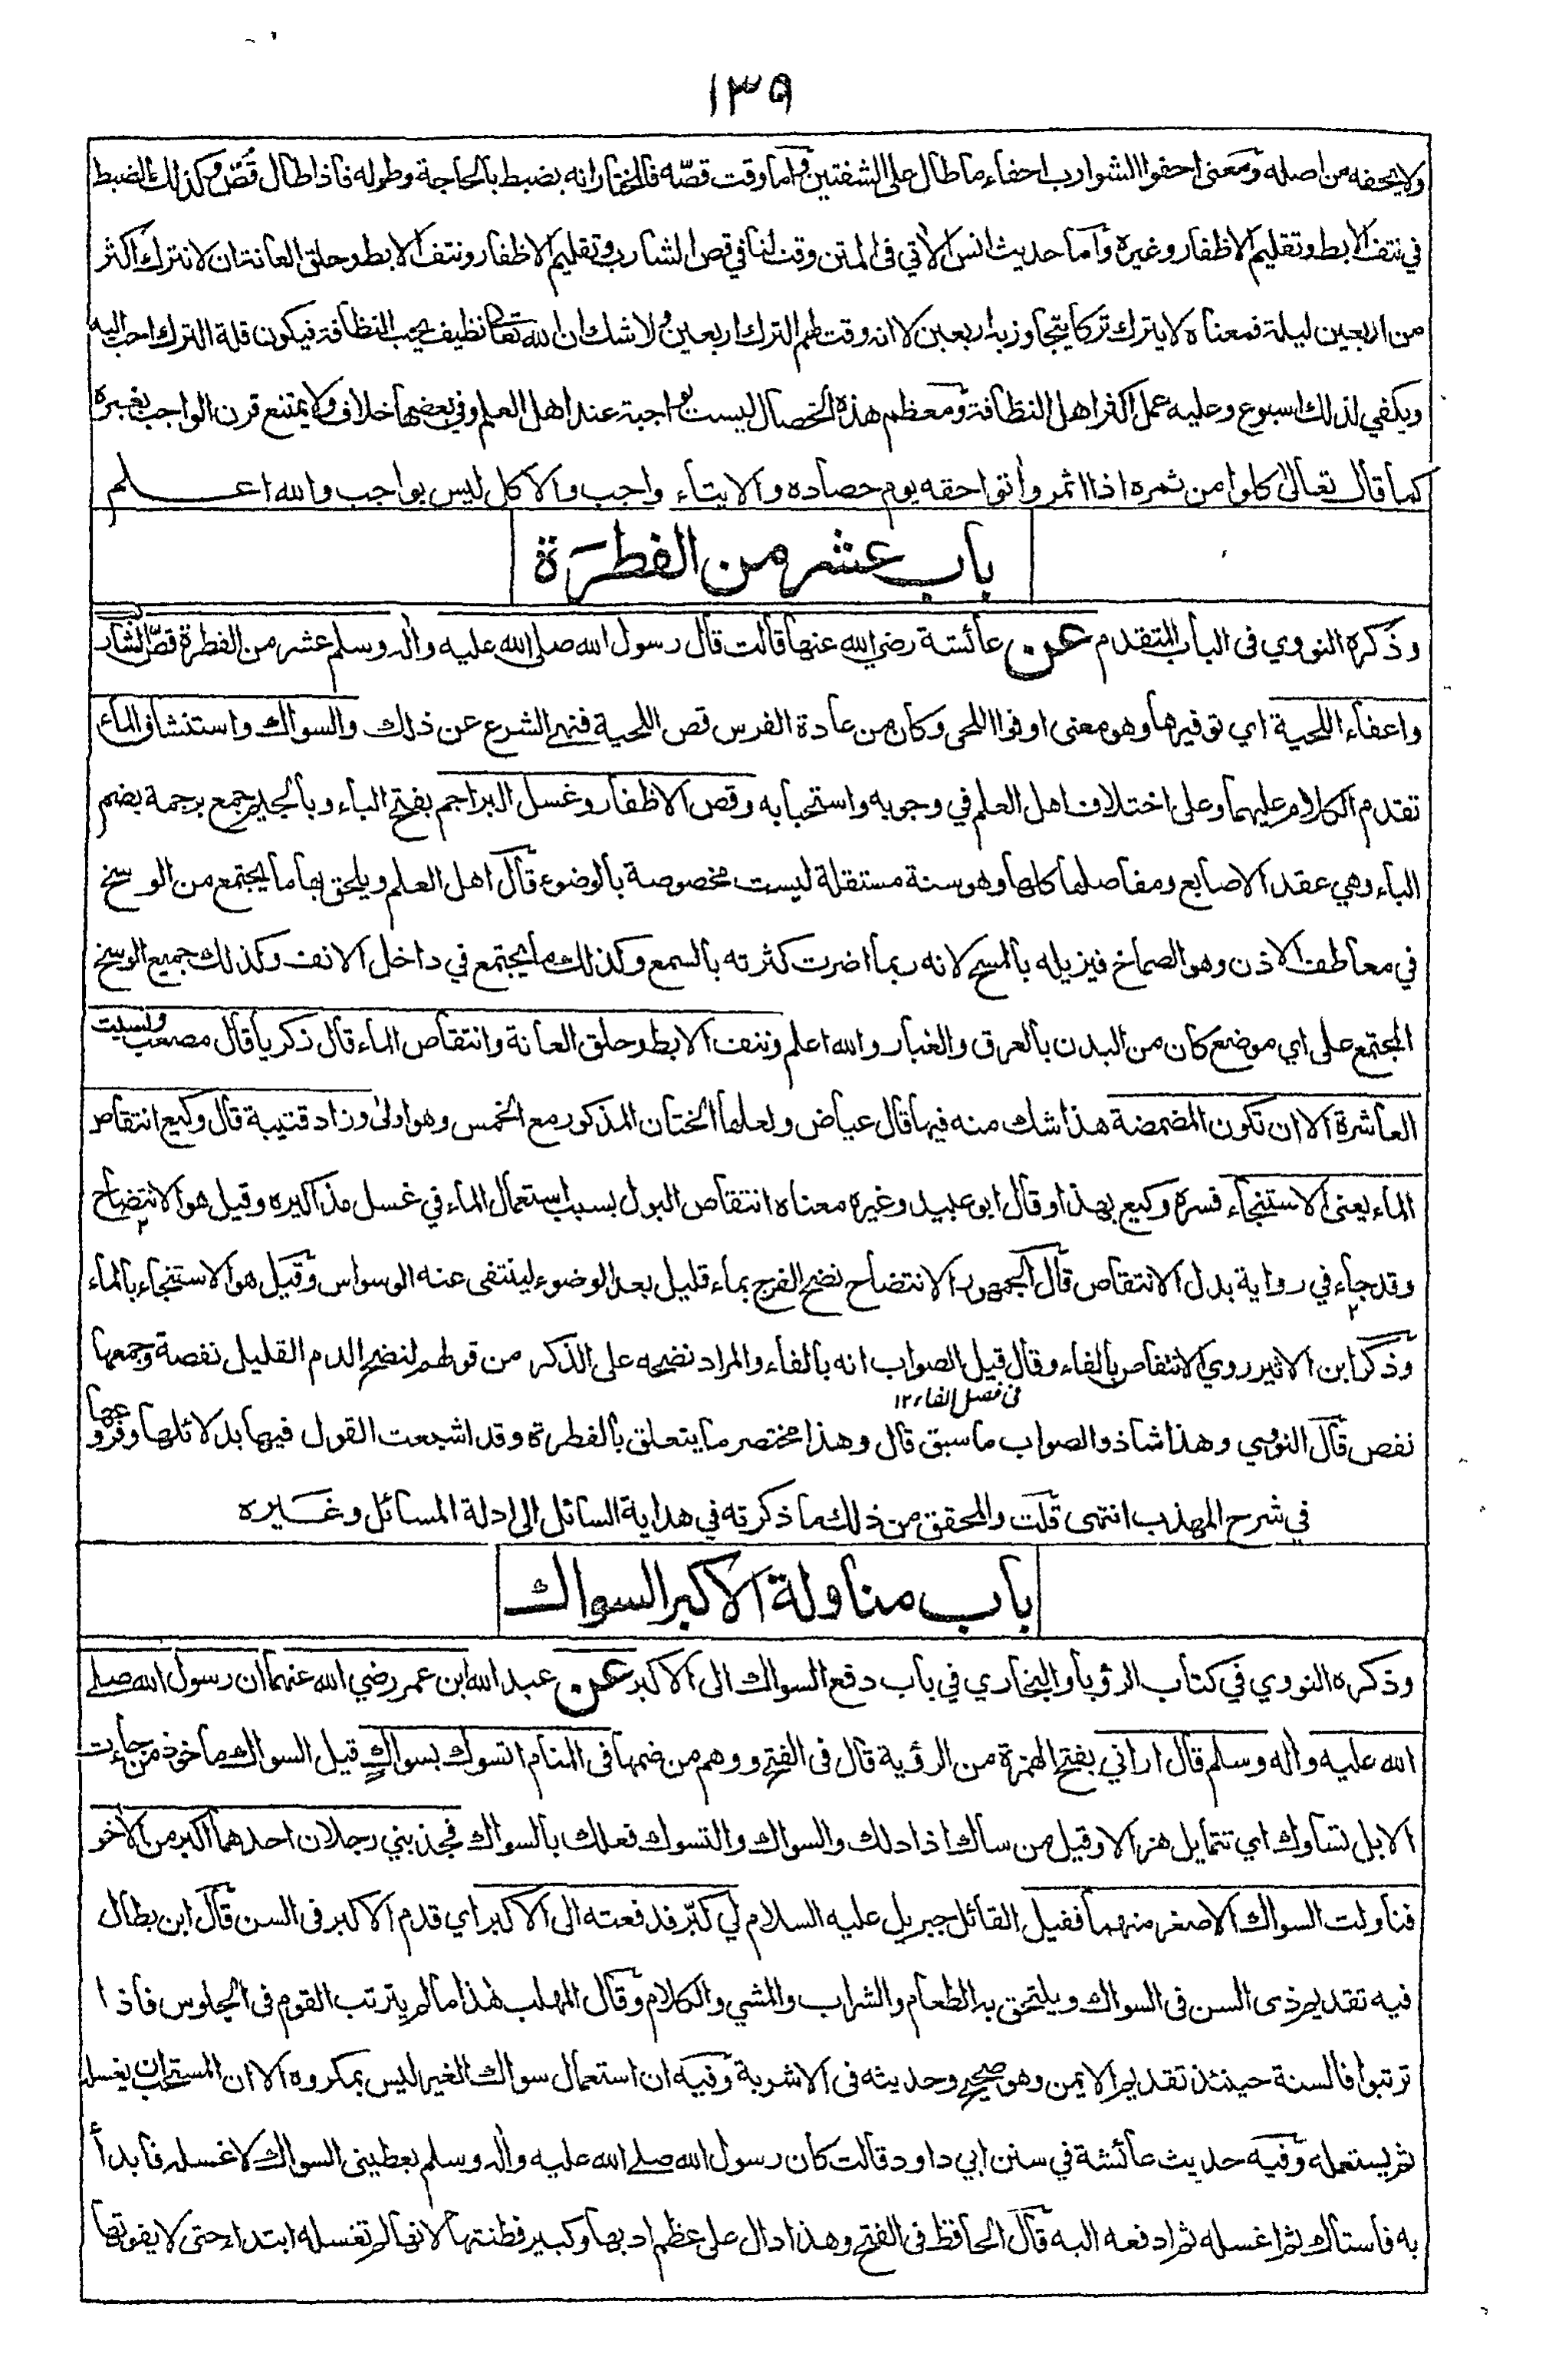 ١٣٩
ولا يحفه من اصله ومعنى احفوا الشوارب احفاء ما طال على الشفتين واما وقت قصّه فالمختار انه يضبط بالحاجة وطوله فاذا طال قُصّ وكذلك الضبط
في نتف الابط وتقليم الاظفار وغيره واما حديث انس الاتي فى المتن وقت لنا في قص الشارب وتقليم الاظفار ونتف الابط وحلق العانة ان لا نترك اكثر
من اربعين ليلة فمعناه لا يترك تركا يتجاوز به اربعين لا انه وقت لهم الترك اربعين ولا شك ان الله تعالى نظيف يحب النظافة فيكون قلة الترك احب اليه
ويكفي لذلك اسبوع وعليه عمل اكثر اهل النظافة ومعظم هذه الخصال ليست بواجبة عند اهل العلم وفي بعضها خلاف ولا يمتنع قرن الواجب بغيره
كما قال تعالى كلوا من ثمره اذا اثمر وأتوا حقه يوم حصاده والايتاء واجب والاكل ليس بواجب والله اعلم
باب عشر من الفطرة
وذكره النووي فى الباب المتقدم عن عائشة رضي الله عنها قالت قال رسول الله صلى الله عليه واله وسلم عشر من الفطرة قصّ الشارب
واعفاء اللحية اي توفيرها وهو معنى اوفوا اللحى وكان من عادة الفرس قص اللحية فنهى الشرع عن ذلك والسواك واستنشاق الماء
تقدم الكلام عليهما وعلى اختلاف اهل العلم في وجوبه واستحبابه وقص الاظفار وغسل البراجم بفتح الباء وبالجيم جمع برجمة بضم
الباء وهي عقد الاصابع ومفاصلها كلها وهو سنة مستقلة ليست مخصوصة بالوضوء قال اهل العلم ويلحق بها ما يجتمع من الوسخ
في معاطف الاذن وهو الصماخ فيزيله بالمسح لانه ربما اضرت كثرته بالسمع وكذلك ما يجتمع في داخل الانف وكذلك جميع الوسخ
المجتمع على اي موضع كان من البدن بالعرق والغبار والله اعلم ونتف الابط وحلق العانة وانتقاص الماء قال زكريا قال مصعب ونسيت
العاشرة الا ان تكون المضمضة هذا شك منه فيها قال عياض ولعلها الختان المذكور مع الخمس وهو اولى وزاد قتيبة قال وكيع انتقاص
الماء يعنى الاستنجاء فسره وكيع بهذا وقال ابو عبيد وغيره معناه انتقاص البول بسبب استعمال الماء في غسل مذاكيره وقيل هو الانتضاح
وقد جاء في رواية بدل الانتقاص قال الجمهور الانتضاح نضح الفرج بماء قليل بعد الوضوء لينتفى عنه الوسواس وقيل هو الاستنجاء بالماء
وذكر ابن الاثير روي الانتقاص بالفاء وقال قيل الصواب انه بالفاء والمراد نضحه على الذكر من قولهم لنضح الدم القليل نفصة وجمعها
فى فصل الفاء ١٢
نفص قال النووي وهذا شاذ والصواب ما سبق قال وهذا مختصر ما يتعلق بالفطرة وقد اشبعت القول فيها بدلائلها وفروعها
في شرح المهذب انتهى قلت والمحقق من ذلك ما ذكرته في هداية السائل الى ادلة المسائل وغيره
باب مناولة الاكبر السواك
وذكره النووي في كتاب الرؤيا والبخاري في باب دفع السواك الى الاكبر عن عبد الله ابن عمر رضي الله عنهما ان رسول الله صلى
الله عليه واله وسلم قال اراني بفتح الهمزة من الرؤية قال فى الفتح ووهم من ضمها فى المنام اتسوك بسواكٍ قيل السواك ماخوذ من جاءت
الابل تساوك اي تتمايل هزالا وقيل من ساك اذا دلك والسواك والتسوك فعلك بالسواك فجذبني رجلان احدهما اكبر من الاخر
فناولت السواك الاصغر منهما فقيل القائل جبريل عليه السلام لي كبّر فدفعته الى الاكبر اي قدم الاكبر فى السن قال ابن بطال
فيه تقديم ذى السن فى السواك ويلتحق به الطعام والشراب والمشي والكلام وقال المهلب هذا ما لم يترتب القوم فى الجلوس فاذا
ترتبوا فالسنة حينئذ تقديم الايمن وهو صحيح وحديثه فى الاشربة وفيه ان استعمال سواك الغير ليس بمكروه الا ان المستحب ان يغسله
ثم يستعمله وفيه حديث عائشة في سنن ابي داود قالت كان رسول الله صلى الله عليه واله وسلم يعطينى السواك لاغسله فابدأ
به فاستاك ثم اغسله ثم ادفعه اليه قال الحافظ فى الفتح وهذا دال على عظم ادبها وكبير فطنتها لانها لم تغسله ابتداء حتى لا يفوتها